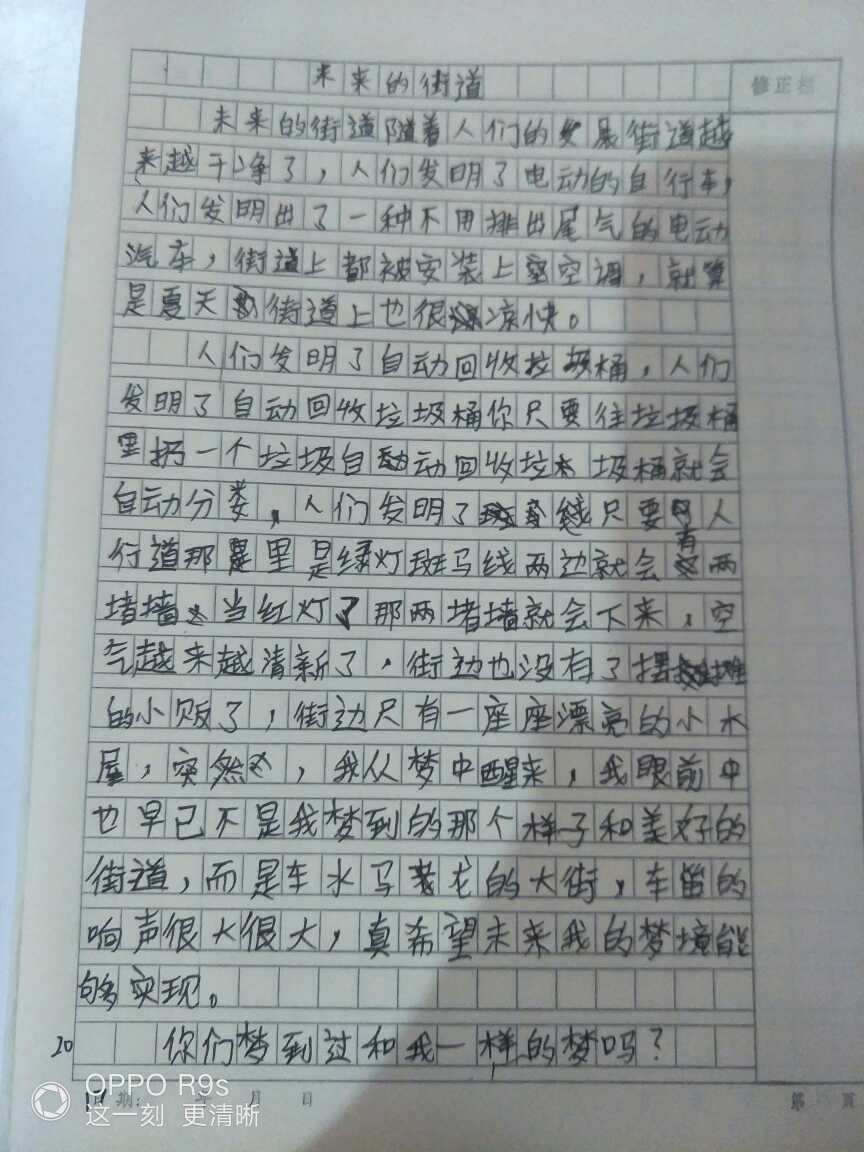 未来的街道
修正栏
未来的街道随着人们的发展街道越
来越干净了，人们发明了电动的自行车，
人们发明出了一种不用排出尾气的电动
汽车，街道上都被安装上空调，就算
是夏天街道上也很凉快。
人们发明了自动回收垃圾桶，人们
发明了自动回收垃圾桶你只要往垃圾桶
里扔一个垃圾自动回收垃圾桶就会
自动分类，人们发明了只要人
行道那里是绿灯斑马线两边就会有两
堵墙当红灯了那两堵墙就会下来，空
气越来越清新了，街边也没有了摆摊
的小贩了，街边只有一座座漂亮的小木
屋，突然，我从梦中醒来，我眼前中
也早已不是我梦到的那个样子和美好的
街道，而是车水马龙的大街，车笛的
响声很大很大，真希望未来我的梦境能
够实现。
20 你们梦到过和我一样的梦吗？
日期： 年 月 日 第 页
OPPO R9s
这一刻 更清晰